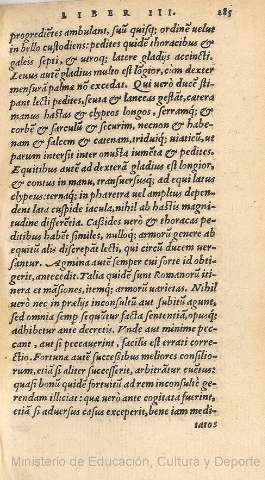 LIBER III. 285
progredietes ambulant, suũ quisq; ordinẽ velut
in bello custodiens: pedites quidẽ thoracibus &
galeis septi, & vtroq; latere gladijs accincti.
Leuus autẽ gladius multo est lõgior, cùm dexter
mensurã palmæ nõ excedat. Qui verò ducẽ sti-
pant lecti pedites, scuta & lanceas gestãt, cætera
manus hastas & clypeos longos, serramq; &
corbẽ & sarculũ & securim, necnon & habe-
nam & falcem & catenam, triduiq; viaticũ, vt
parum intersit inter onusta iumẽta & pedites.
Equitibus autẽ ad dexterã gladius est longior,
& contus in manu, transuersusq; ad equi latus
clypeus: ternaq; in pharetra vel amplius depen-
dent lata cuspide iacula, nihil ab hastis magni-
tudine differẽtia. Cassides verò & thoracas pe-
ditibus habẽt similes, nulloq; armorũ genere ab
equitũ alis discrepãt lecti, qui circũ ducem ver-
santur. Agmina autẽ semper cui sorte id obti-
gerit, antecedit. Talia quidẽ sunt Romanorũ iti-
nera et mãsiones, itemq; armorũ varietas. Nihil
verò nec in prælijs inconsultũ aut subitũ agunt,
sed omnia semp sequũtur facta sententiã, opusq;
adhibetur ante decretis. Vnde aut minime pec-
cant, aut si peccauerint, facilis est errati corre-
ctio. Fortunæ autẽ successibus meliores consilio-
rum, etiã si aliter successerit, arbitrãtur euẽtus:
quasi bonũ quidẽ fortuitũ ad rem inconsultè ge-
rendam illiciat: quæ verò ante cogitata fuerint,
etiã si aduersus casus exceperit, bene iam medi-
tatos
Ministerio de Educación, Cultura y Deporte